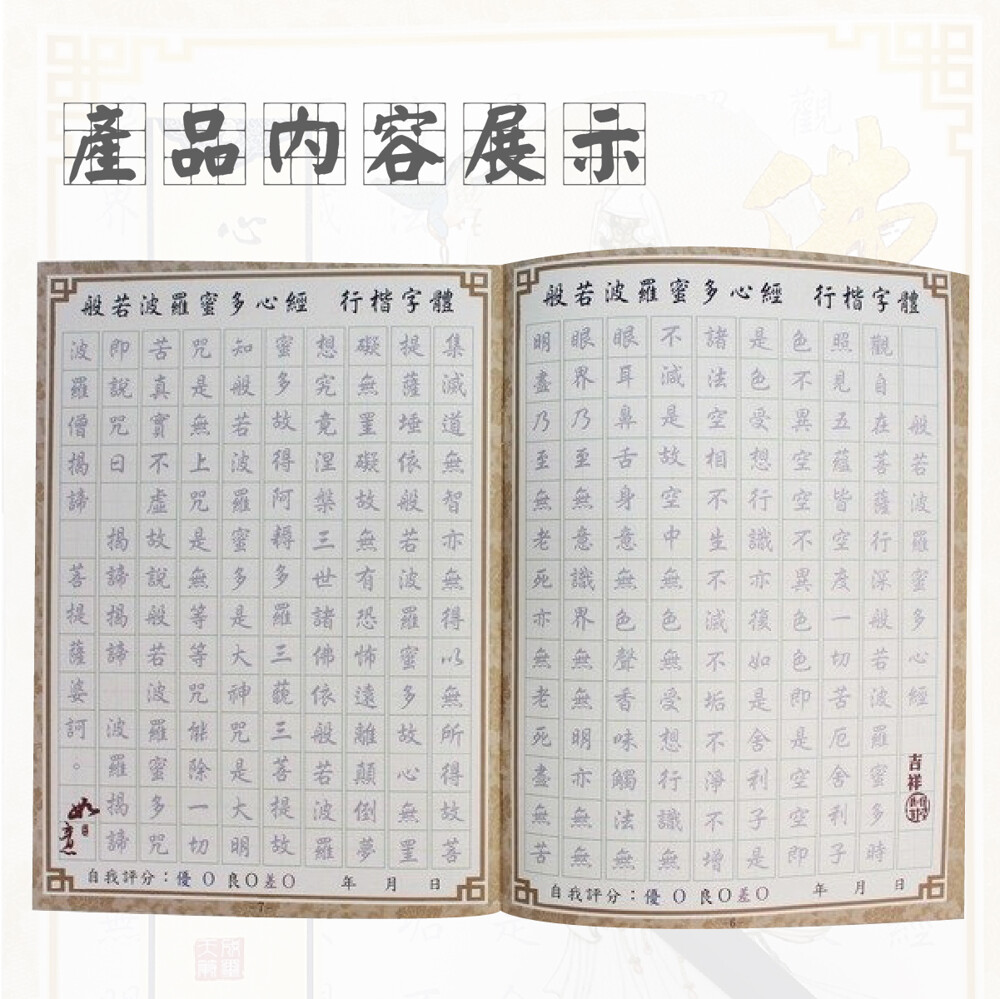 產品内容展示
般若波羅蜜多心經 行楷字體
般若波羅蜜多心經
吉祥
觀自在菩薩行深般若波羅蜜多時
照見五蘊皆空度一切苦厄舍利子
色不異空空不異色色即是空空即
是色受想行識亦復如是舍利子是
諸法空相不生不滅不垢不淨不增
不減是故空中無色無受想行識無
眼耳鼻舌身意無色聲香味觸法無
眼界乃至無意識界無無明亦無無
明盡乃至無老死亦無老死盡無苦
自我評分：優〇良〇差〇 年 月 日
6
般若波羅蜜多心經 行楷字體
集滅道無智亦無得以無所得故菩
提薩埵依般若波羅蜜多故心無罣
礙無罣礙故無有恐怖遠離顛倒夢
想究竟涅槃三世諸佛依般若波羅
蜜多故得阿耨多羅三藐三菩提故
知般若波羅蜜多是大神咒是大明
咒是無上咒是無等等咒能除一切
苦真實不虛故說般若波羅蜜多咒
即說咒曰 揭諦揭諦 波羅揭諦
波羅僧揭諦 菩提薩婆訶。
如意
自我評分：優〇良〇差〇 年 月 日
-7-
佛
觀
心